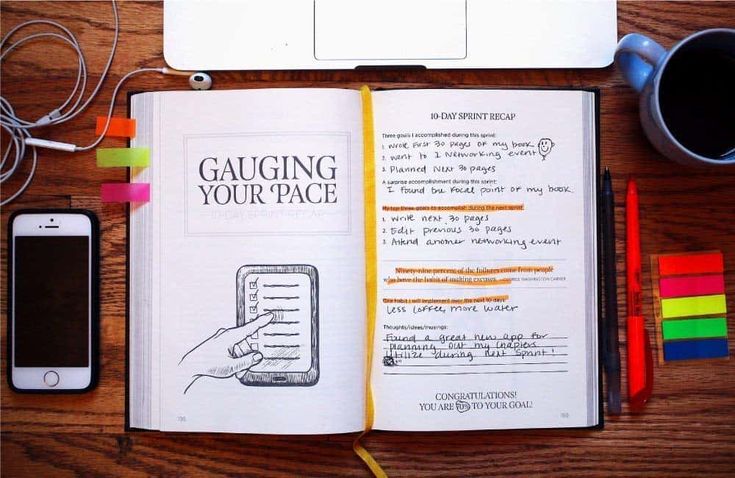 GAUGING
YOUR PACE
10-DAY SPRINT RECAP
10-DAY SPRINT RECAP
Three goals I accomplished during this sprint:
1. Wrote first 30 pages of my book
2. Went to 1 Networking event
3. Planned Next 30 pages
A surprise accomplishment during this sprint:
I found the focal point of my book
My top three goals to accomplish during the next sprint:
1. Write next 30 pages
2. Edit previous 30 pages
3. Attend another networking event
Ninety-nine percent of the failures come from people
who have the habit of making excuses. —GEORGE WASHINGTON CARVER
One habit I will implement over the next 10 days:
Less coffee, more water
Thoughts/ideas/musings:
Found a great new app for
planning out my chapters
Utilize during next sprint!
CONGRATULATIONS!
YOU ARE 70% TO YOUR GOAL!